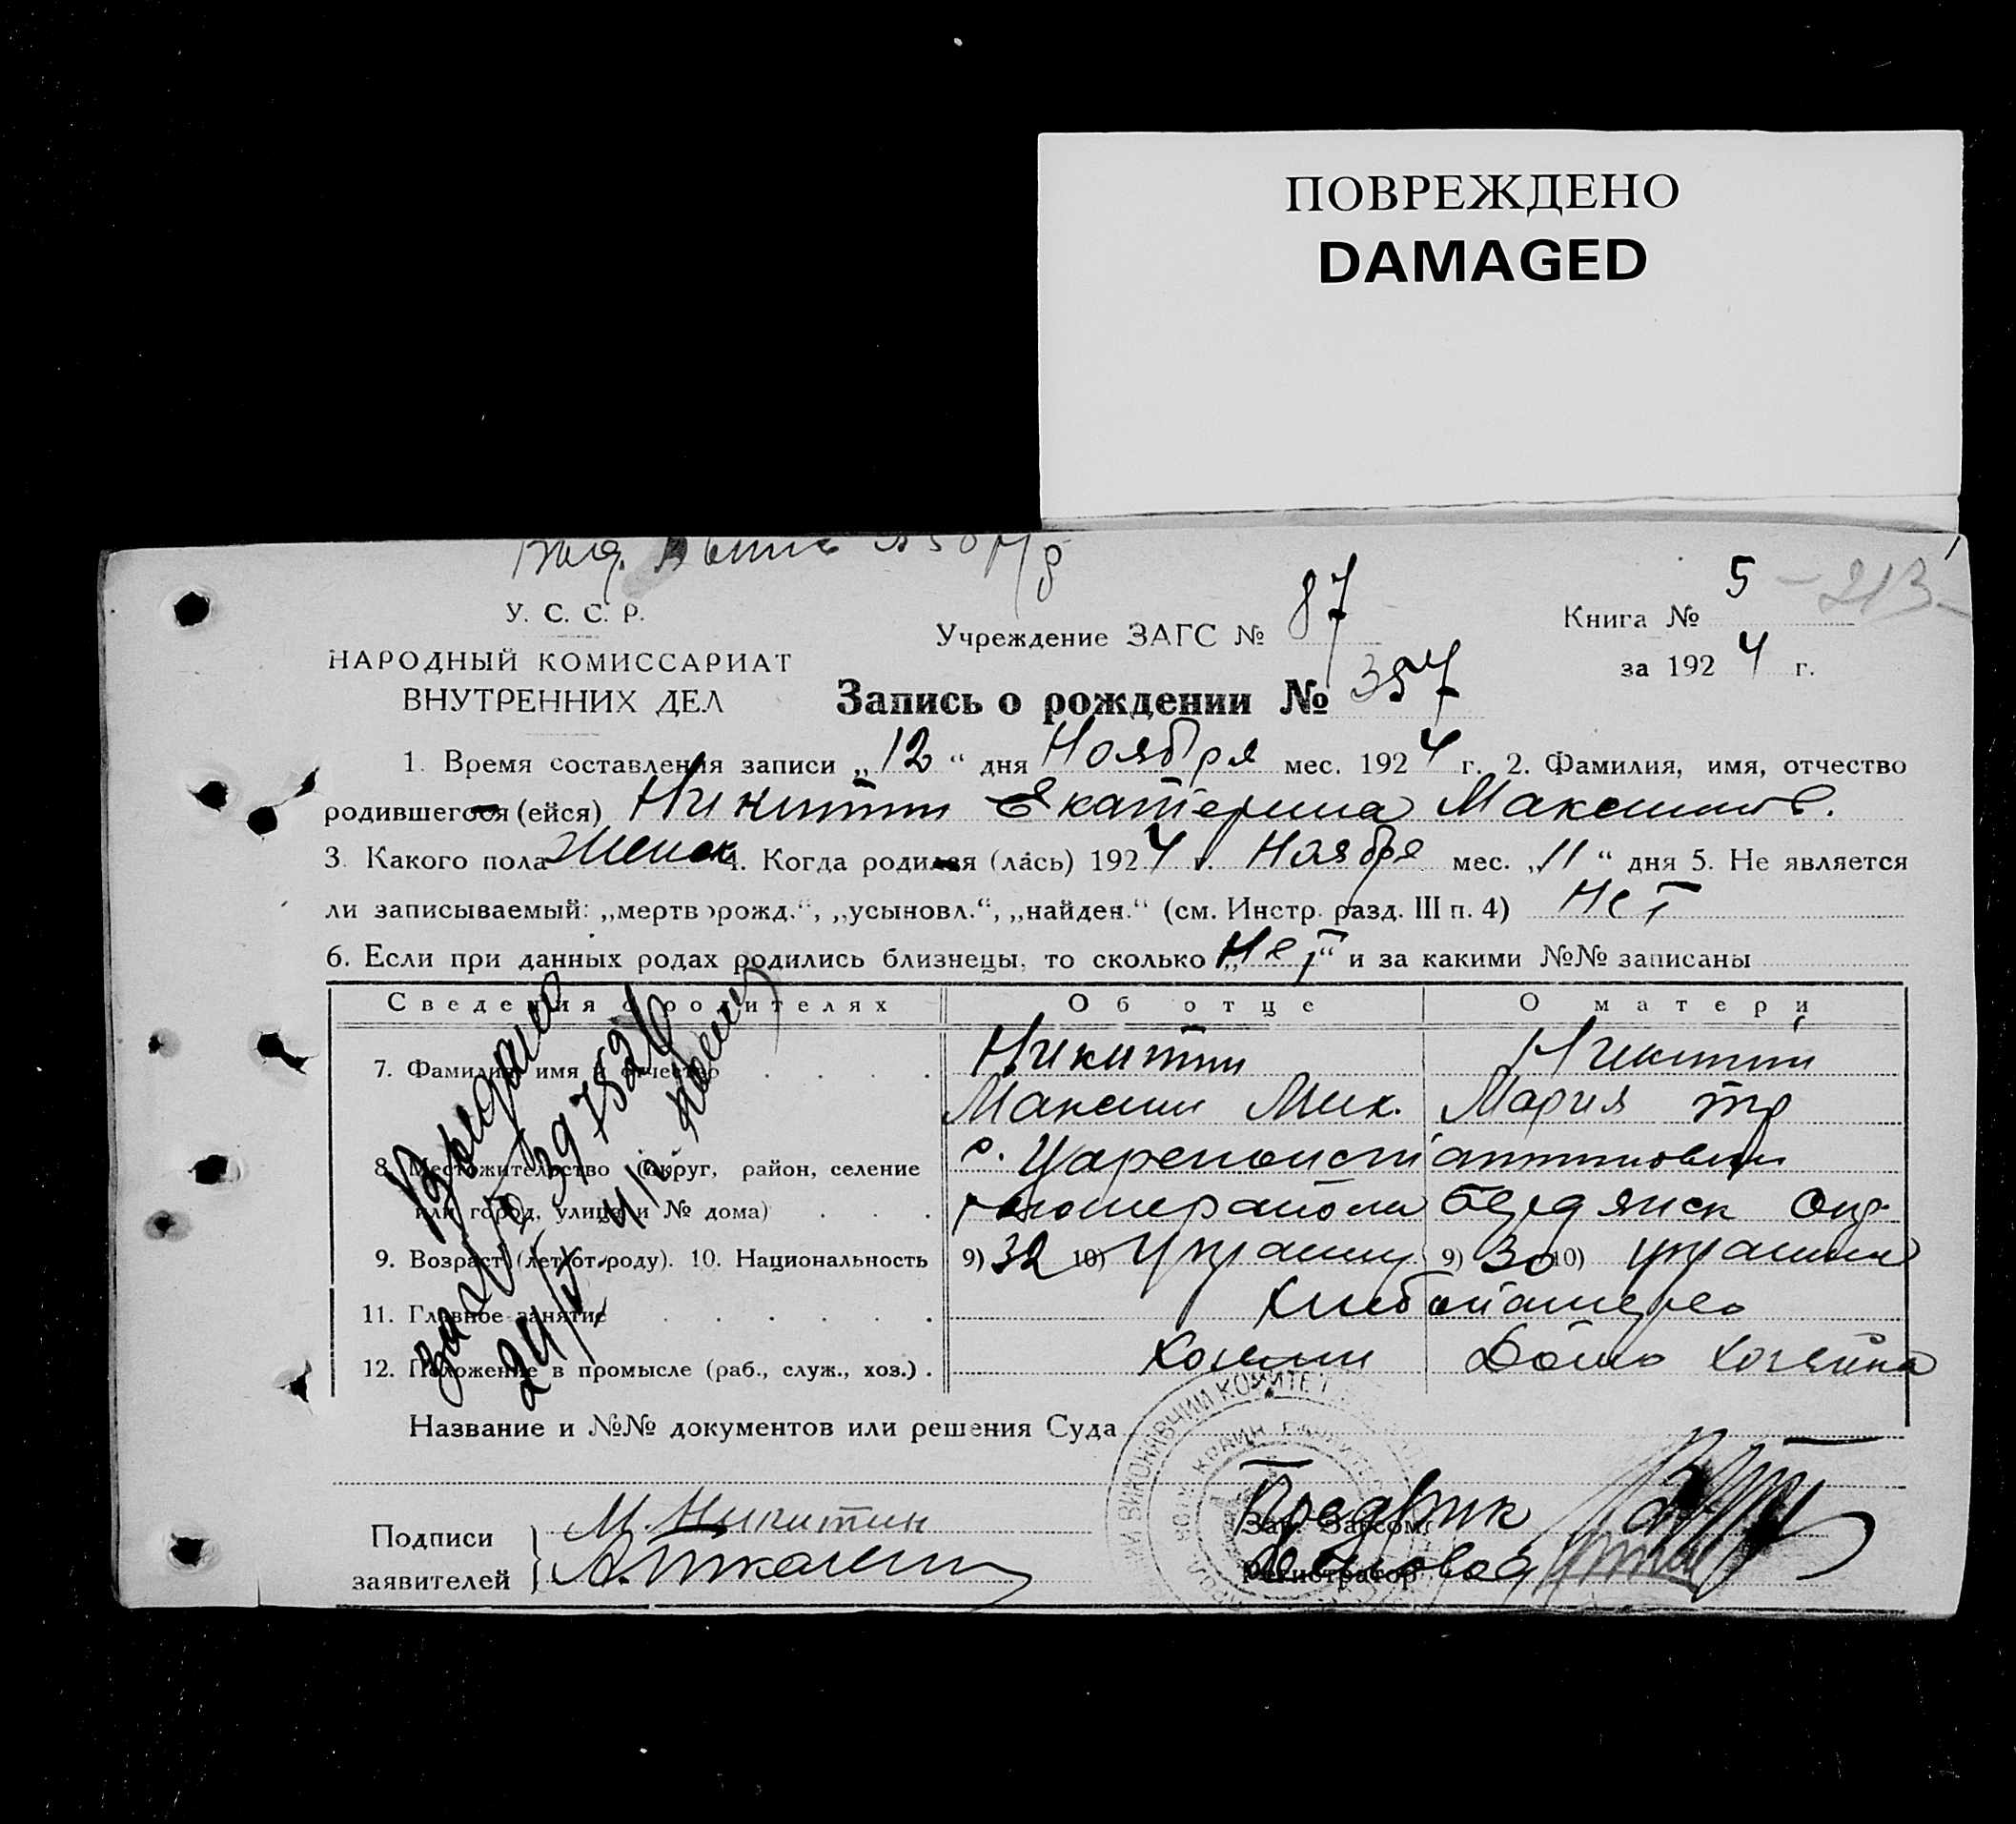 ПОВРЕЖДЕНО
DAMAGED
У. С. С. Р.
НАРОДНЫЙ КОМИССАРИАТ
ВНУТРЕННИХ ДЕЛ
Учреждение ЗАГС № 87
Книга № 5 - 213 -
за 1924 г.
Запись о рождении № 357
1. Время составления записи „12“ дня Ноября мес. 1924 г. 2. Фамилия, имя, отчество
родившегося (ейся) Никитин Екатерина Максимов.
3. Какого пола женск 4. Когда родился (лась) 1924 г. Ноября мес. „11“ дня 5. Не является
ли записываемый: „мертворожд.“, „усыновл.“, „найден.“ (см. Инстр. разд. III п. 4) Нет
6. Если при данных родах родились близнецы, то сколько „Нет“ и за какими №№ записаны
Сведения о родителях Об отце О матери
7. Фамилия, имя и отчество Никитин Никитин
Максим Мик. Мария
8. Местожительство (округ, район, селение с. Цареконстантиновки
или город, улица и № дома) района Бердянск Окр.
9. Возраст (лет от роду). 10. Национальность 9) 32 10) Украинц 9) 30 10) украинк
11. Главное занятие Хлебопашество
12. Положение в промысле (раб., служ., хоз.) Хозяин Домо хозяйка
Выдано
24/IV
Название и №№ документов или решения Суда
Подписи
заявителей
М. Никитин
А. Ткаченко
Зав. Загсом
Регистратор